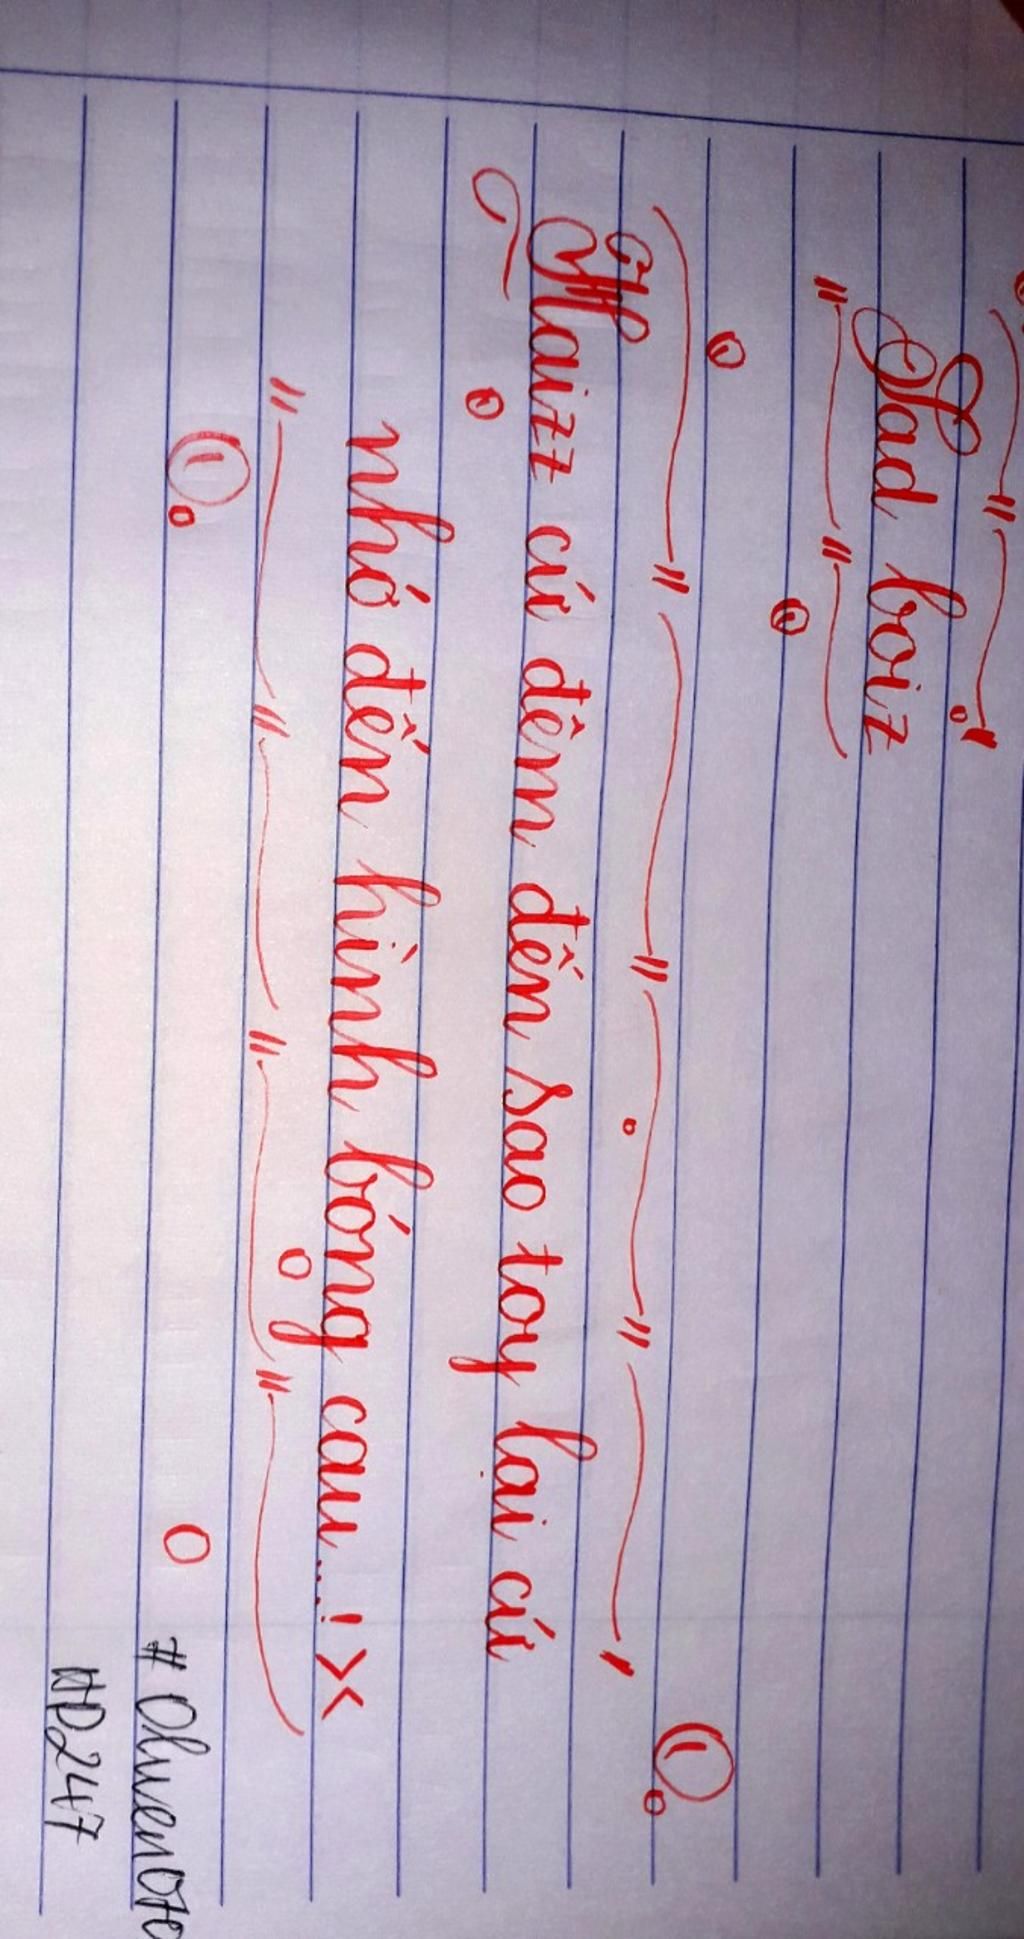 Sad boiz
Haizz cứ đêm đến sao toy lại cứ
nhớ đến hình bóng cau...! ><
HD247